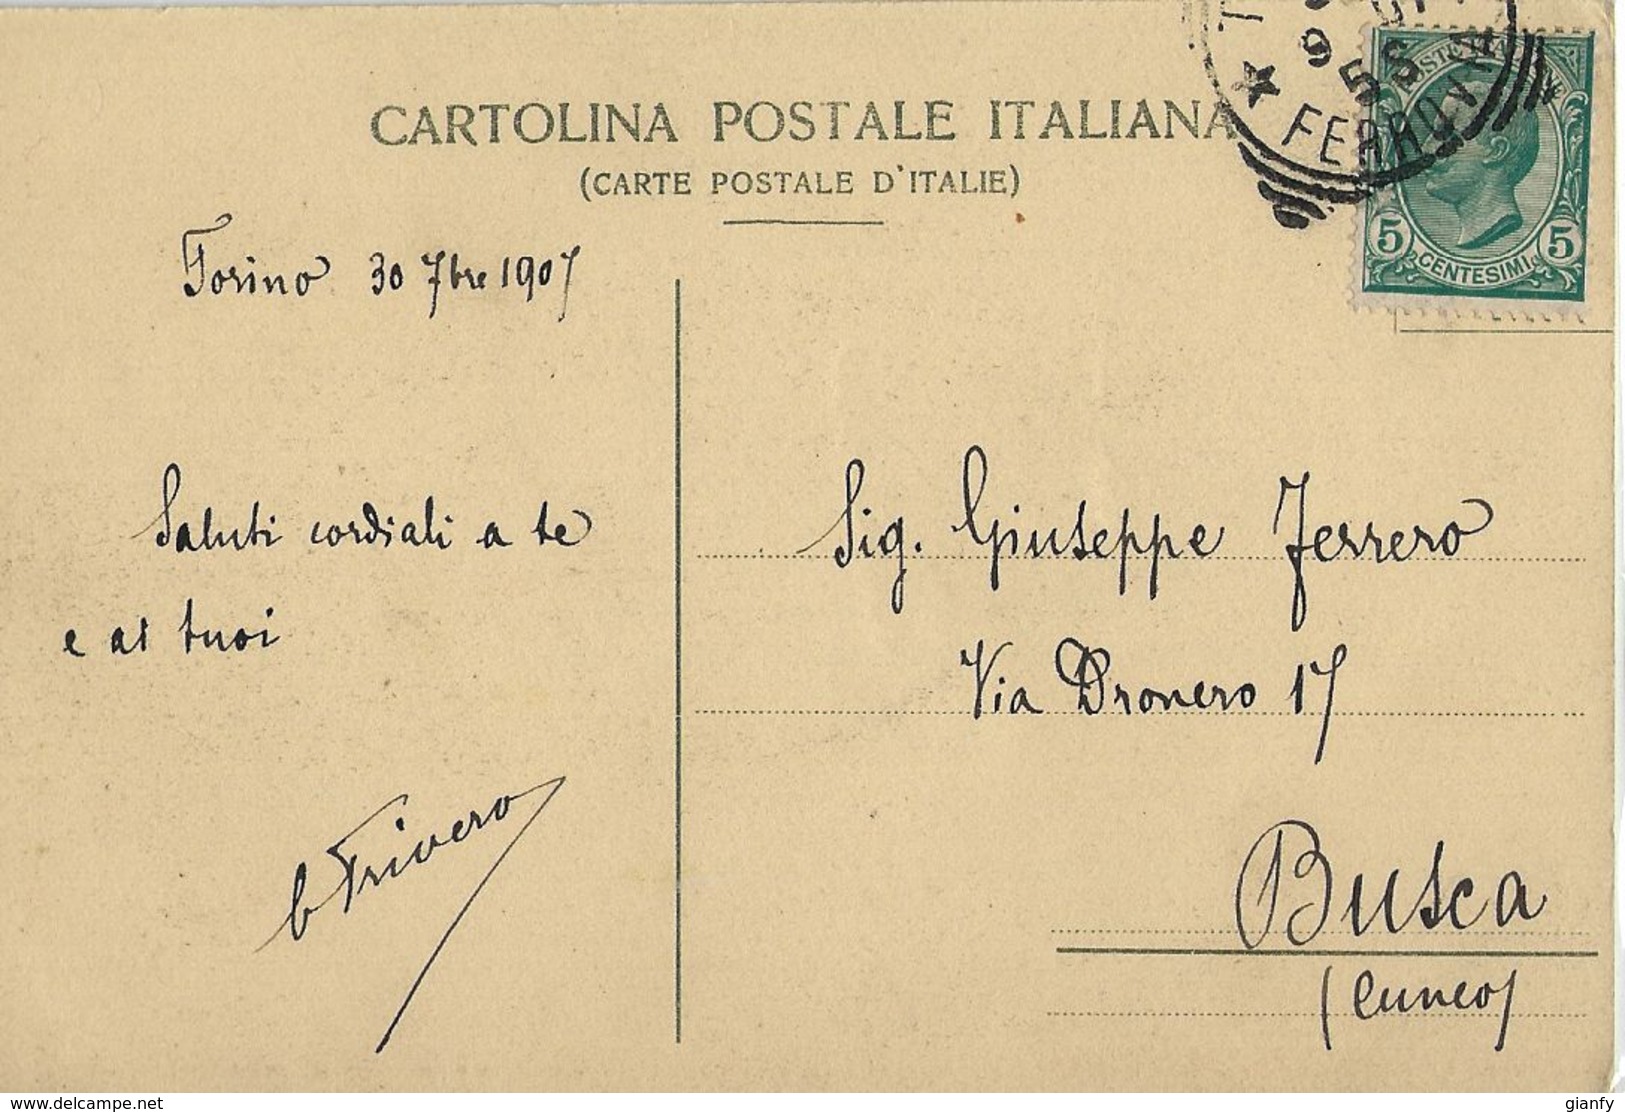 CARTOLINA POSTALE ITALIANA
(CARTE POSTALE D'ITALIE)
9 5 S
FERROVIA
POSTE ITALIANE
5 CENTESIMI 5
Torino 30 7bre 1907
Saluti cordiali a te
e ai tuoi
Sig. Giuseppe Ferrero
Via Dronero 17
Busca
(Cuneo)
www.delcampe.net
gianfy